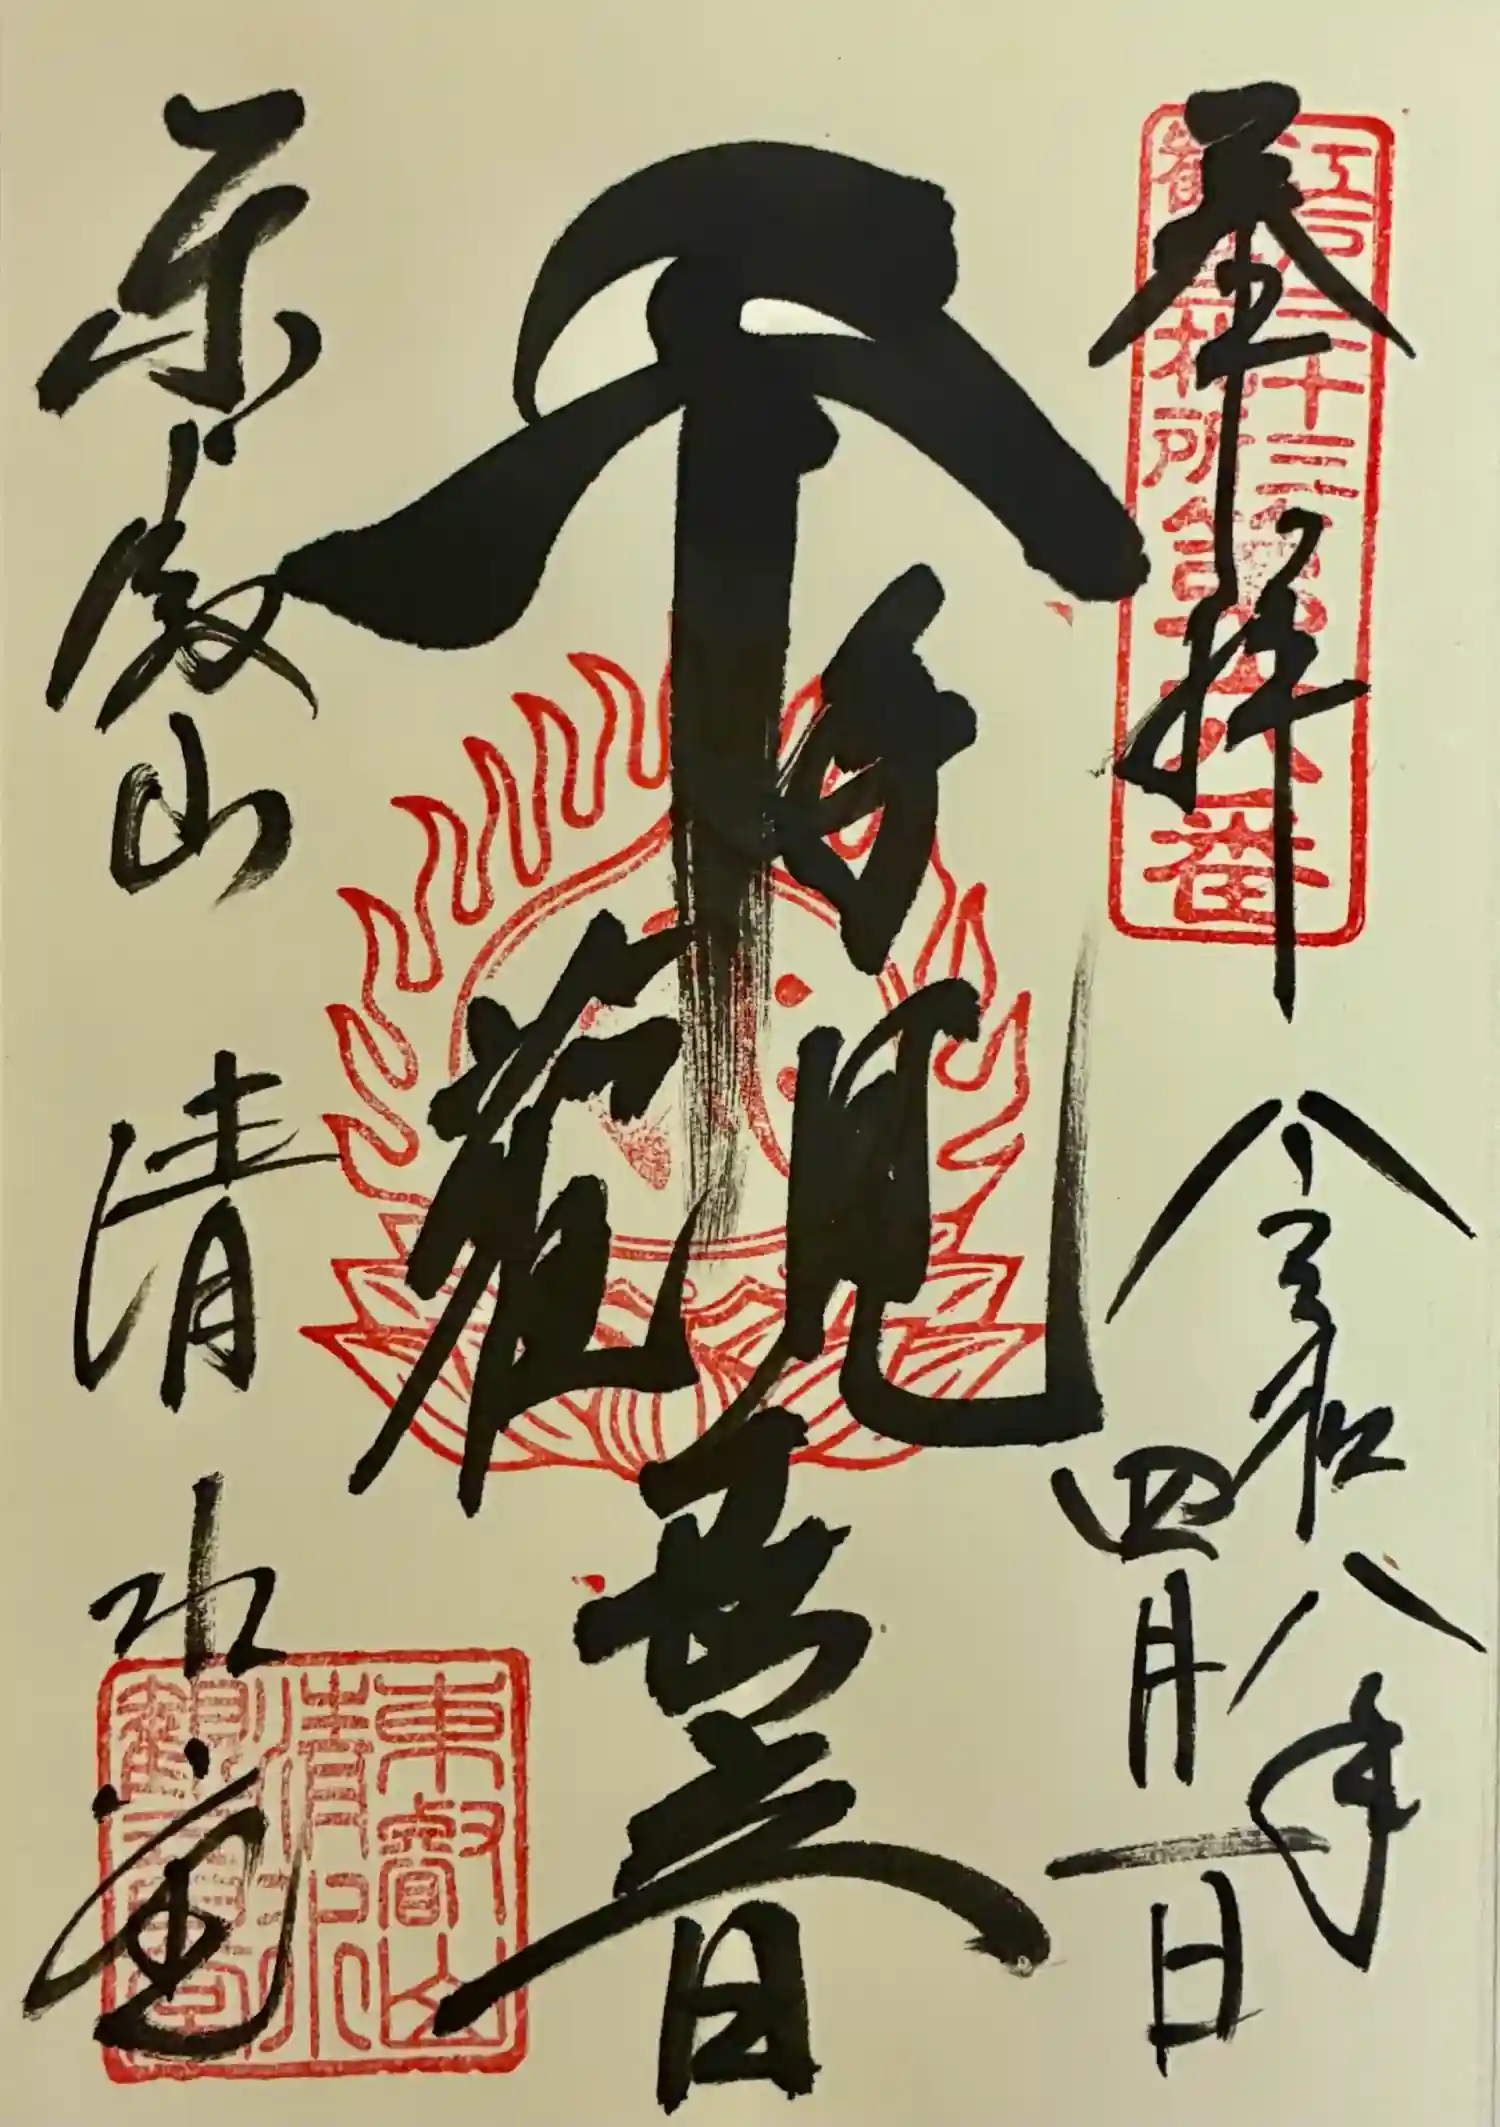 奉拝
令和八年
四月一日
江戸三十三箇所
観音札所第六番
千手観世音
東叡山 清水堂
東叡山
清水
観音堂